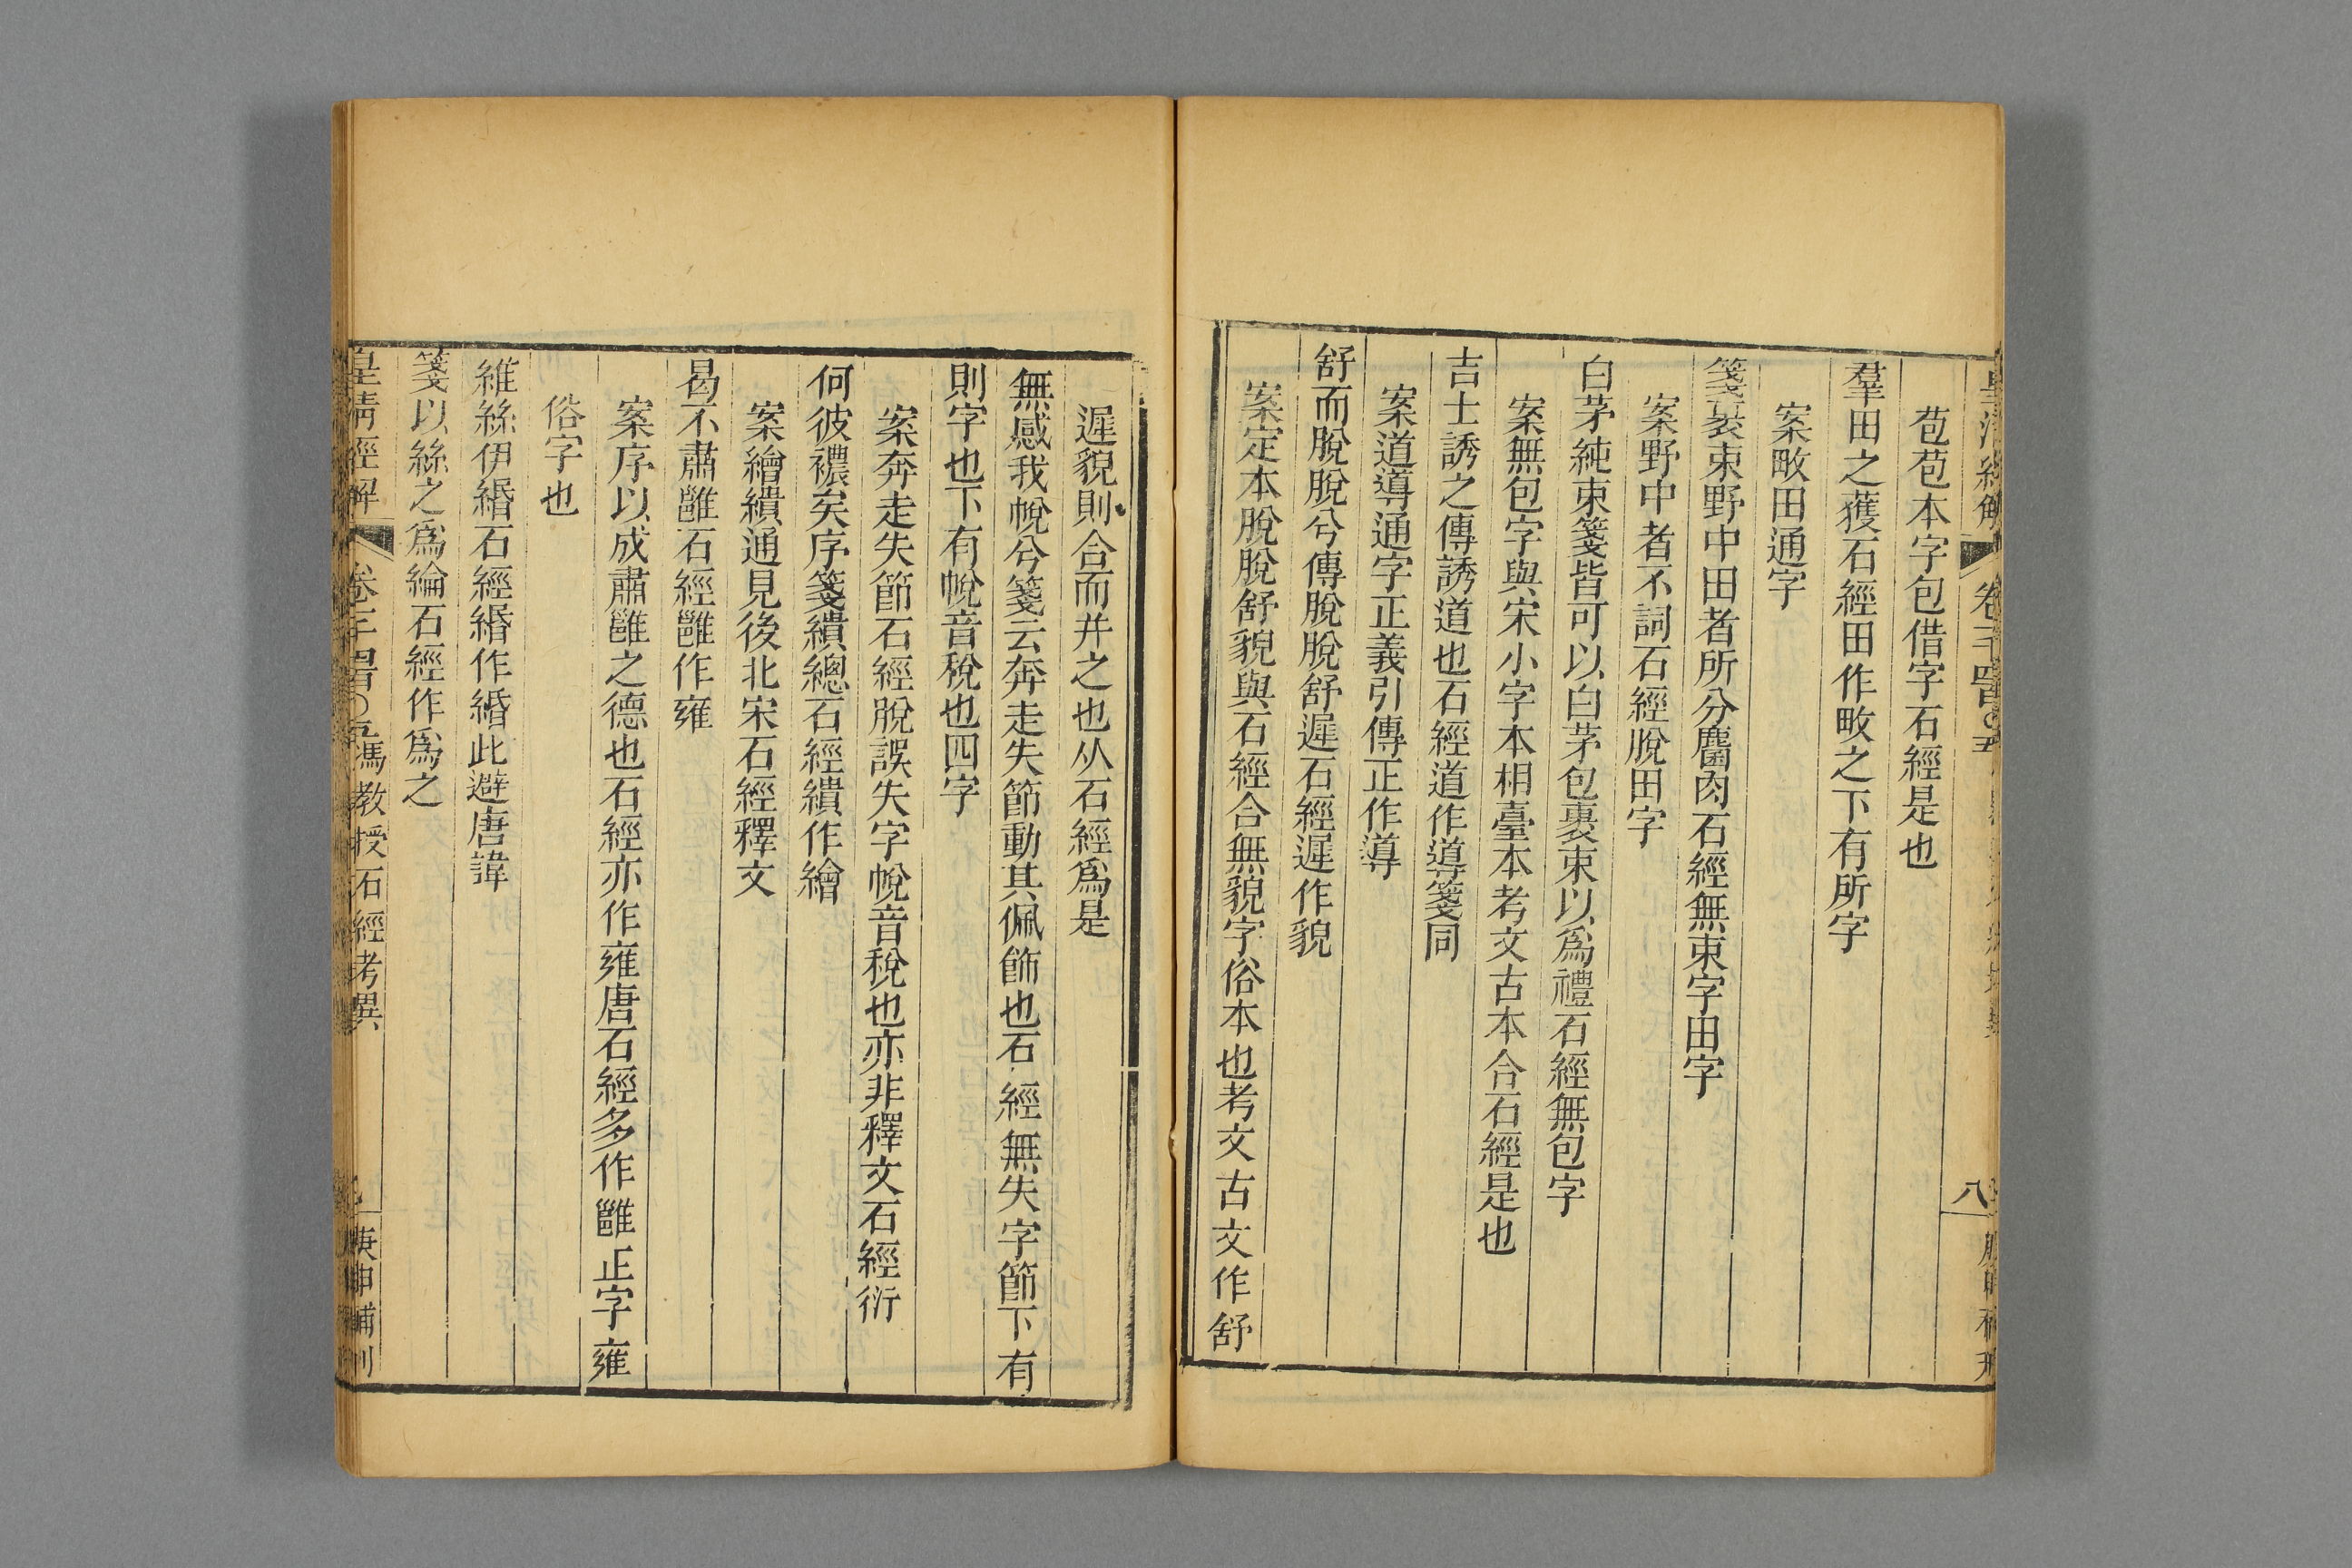 苞苞本字包借字石經是也
羣田之獲石經田作畋之下有所字
案畋田通字
箋裹束野中田者所分麕肉石經無束字田字
案野中者不詞石經脫田字
白茅純束箋皆可以白茅包裹束以爲禮石經無包字
案無包字與宋小字本相臺本考文古本合石經是也
吉士誘之傳誘道也石經道作導箋同
案道導通字正義引傳正作導
舒而脫脫兮傳脫脫舒遲石經遲作貌
案定本脫脫舒貌與石經合無貌字俗本也考文古文作舒
遲貌則合而并之也从石經爲是
無感我帨兮箋云奔走失節動其佩飾也石經無失字節下有
則字也下有帨音稅也四字
案奔走失節石經脫誤失字帨音稅也亦非釋文石經衍
何彼襛矣序箋繢總石經繢作繪
案繪繢通見後北宋石經釋文
曷不肅雝石經雝作雍
案序以成肅雝之德也石經亦作雍唐石經多作雝正字雍
俗字也
維絲伊緡石經緡作緍此避唐諱
箋以絲之爲綸石經作爲之
皇清經解 卷千四百〇五馮教授石經考異 庚申補刊